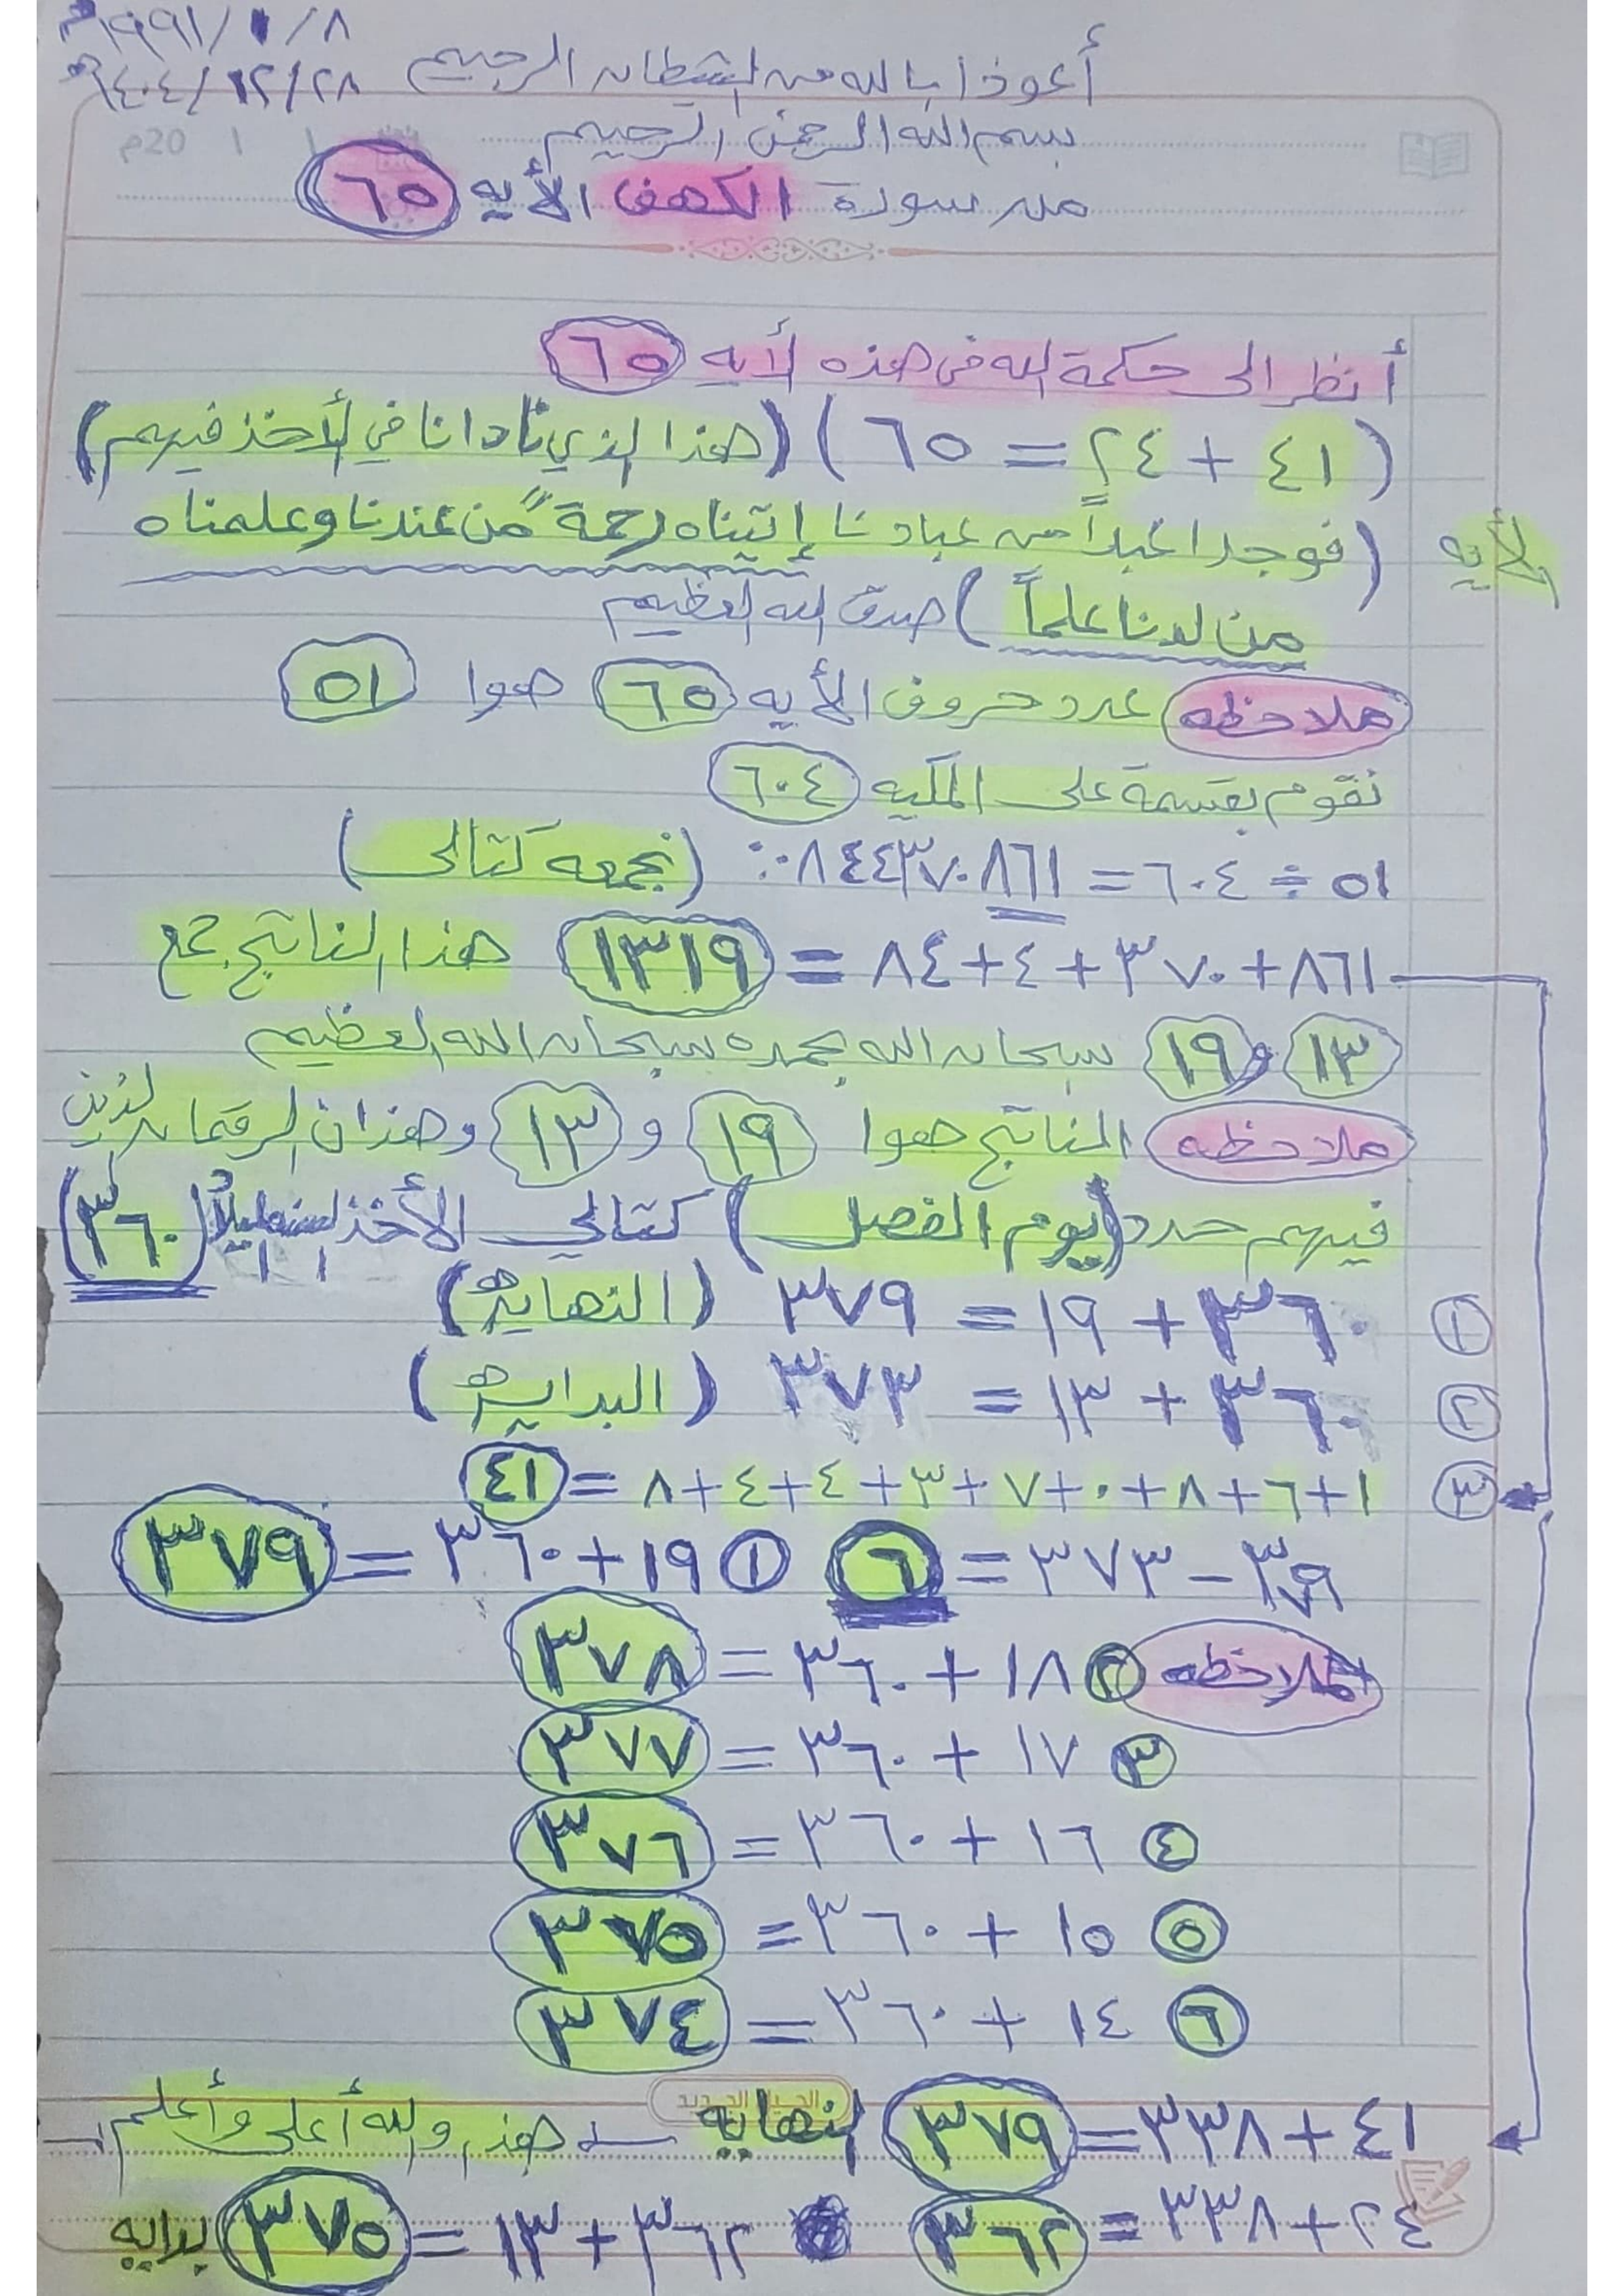 ١٩٩١/١/٨م
١٤٠٤/١٢/٢٨ه
أعوذ بالله من الشيطان الرجيم
بسم الله الرحمن الرحيم
20م / /
من سورة الكهف الأيه ٦٥
أنظر الى حكمة الله في هذه الأيه ٦٥
(٤١ + ٢٤ = ٦٥) (هذا الذي نادانا في لأخذ فيهم)
الأيه (فوجدا عبداً من عبادنا إتيناه رحمةً من عندنا وعلمناه
من لدنا علماً) صدق الله العظيم
ملاحظه عدد حروف الأيه ٦٥ هوا ٥١
نقوم بقسمة على المكيه ٦٠٤
٥١ ÷ ٦٠٤ = ٠٨٤٤٣٧٠٨٦١ (نجمعه كتالى)
٨٦١ + ٣٧٠ + ٤ + ٨٤ = ١٣١٩ هذا الناتج جمع
١٣ و ١٩ سبحان الله بحمده سبحان الله العظيم
ملاحظه الناتج هوا ١٩ و ١٣ وهذان الرقمان لذين
فيهم حدد (يوم الفصل) كتالي الأخذ (٣٦٠)
١ ٣٦٠ + ١٩ = ٣٧٩ (النهايه)
٢ ٣٦٠ + ١٣ = ٣٧٣ (البدايه)
٣ ١+٦+٨+٠+٧+٣+٤+٤+٨ = ٤١
٣٧٩ - ٣٧٣ = ٦ ١ ١٩ + ٣٦٠ = ٣٧٩
الملاحظه ٢ ١٨ + ٣٦٠ = ٣٧٨
٣ ١٧ + ٣٦٠ = ٣٧٧
٤ ١٦ + ٣٦٠ = ٣٧٦
٥ ١٥ + ٣٦٠ = ٣٧٥
٦ ١٤ + ٣٦٠ = ٣٧٤
الجديد
٤١ + ٣٣٨ = ٣٧٩ لنهايه هذا ولله أعلى وأعلم
٢٤ + ٣٣٨ = ٣٦٢ ٣٦٢ + ١٣ = ٣٧٥ بدايه